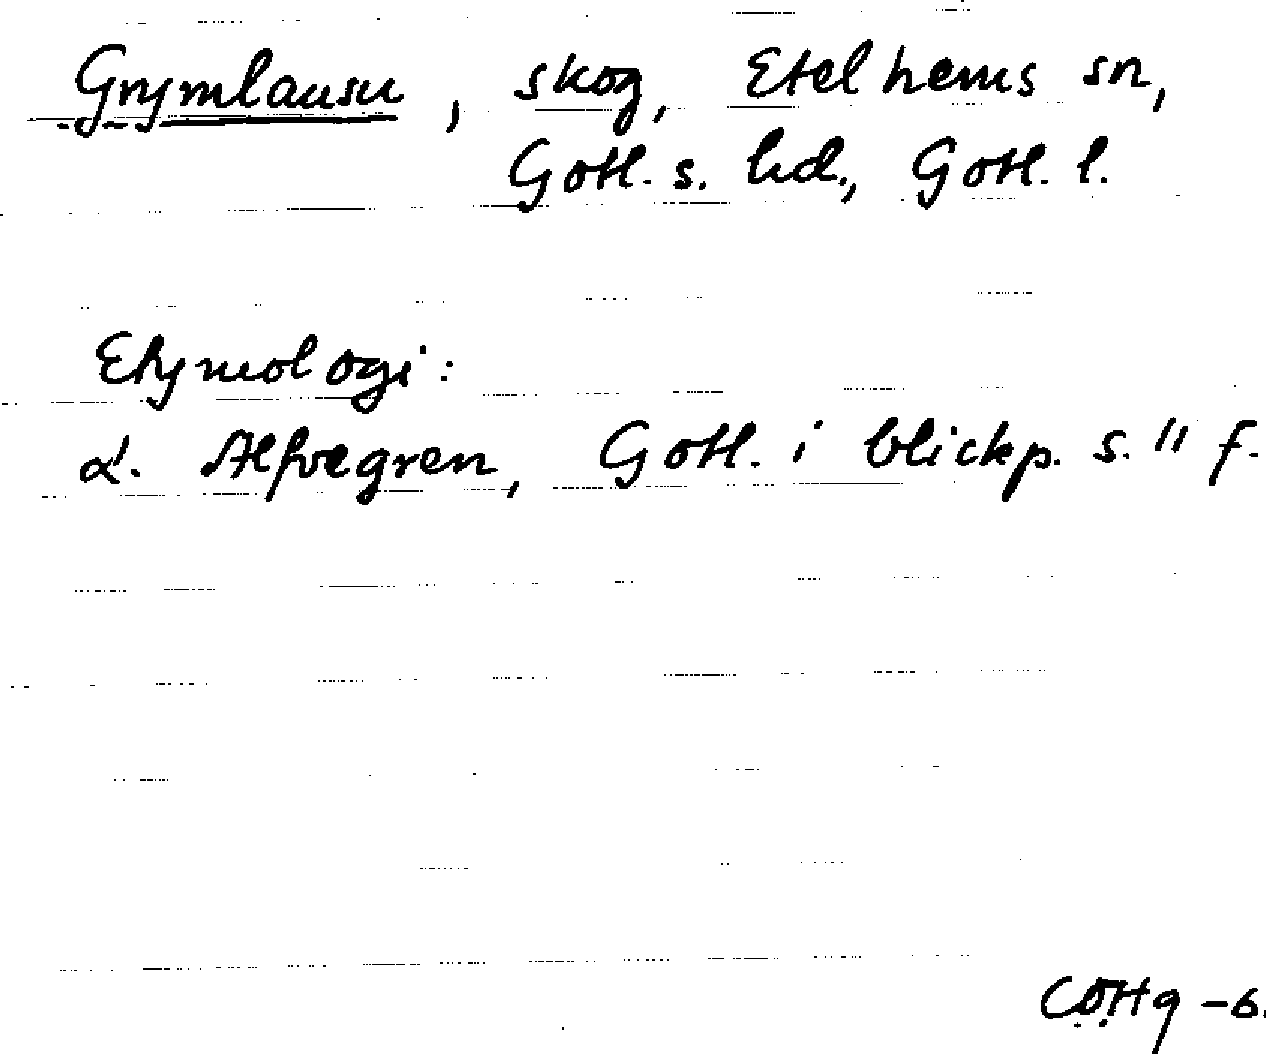 Grymlausu, skog, Etelhems sn,
Gotl. s. hd., Gotl. l.
Etymologi:
L. Alfvegren, Gotl. i blickp. s. 11 f.